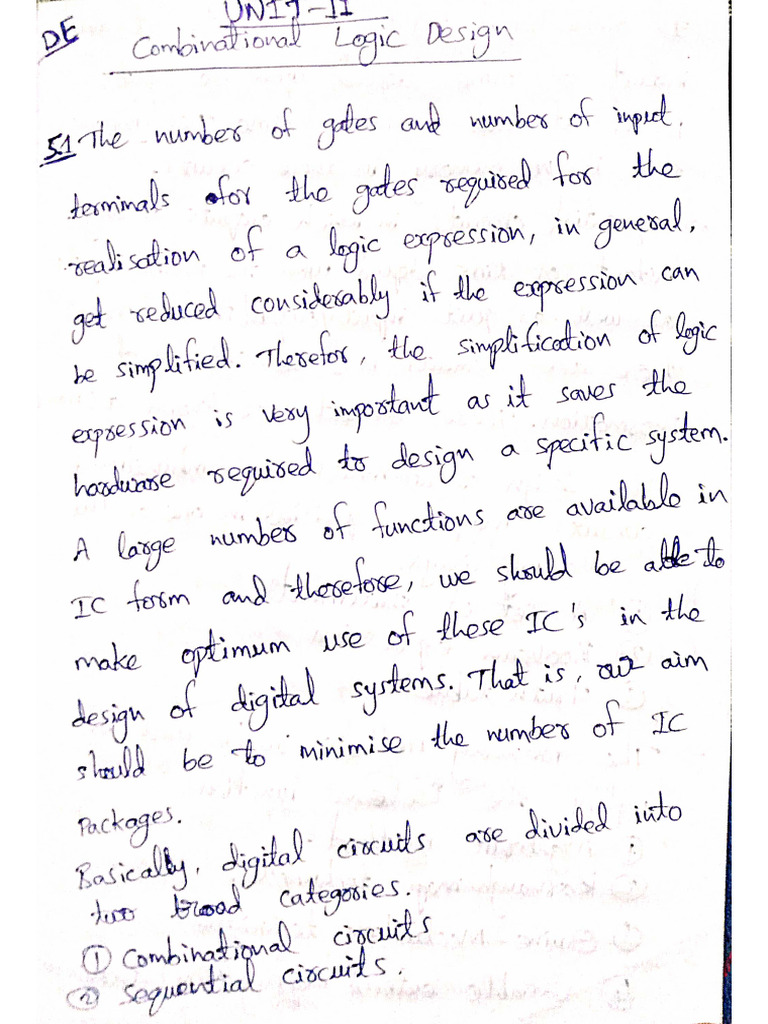 DE
UNIT-II
Combinational Logic Design
5.1 The number of gates and number of input
terminals for the gates required for the
realisation of a logic expression, in general,
get reduced considerably if the expression can
be simplified. Therefor, the simplification of logic
expression is very important as it saves the
hardware required to design a specific system.
A large number of functions are available in
IC form and therefore, we should be able to
make optimum use of these IC's in the
design of digital systems. That is, our aim
should be to minimise the number of IC
Packages.
Basically, digital circuits are divided into
two broad categories.
① Combinational circuits
② Sequential circuits.